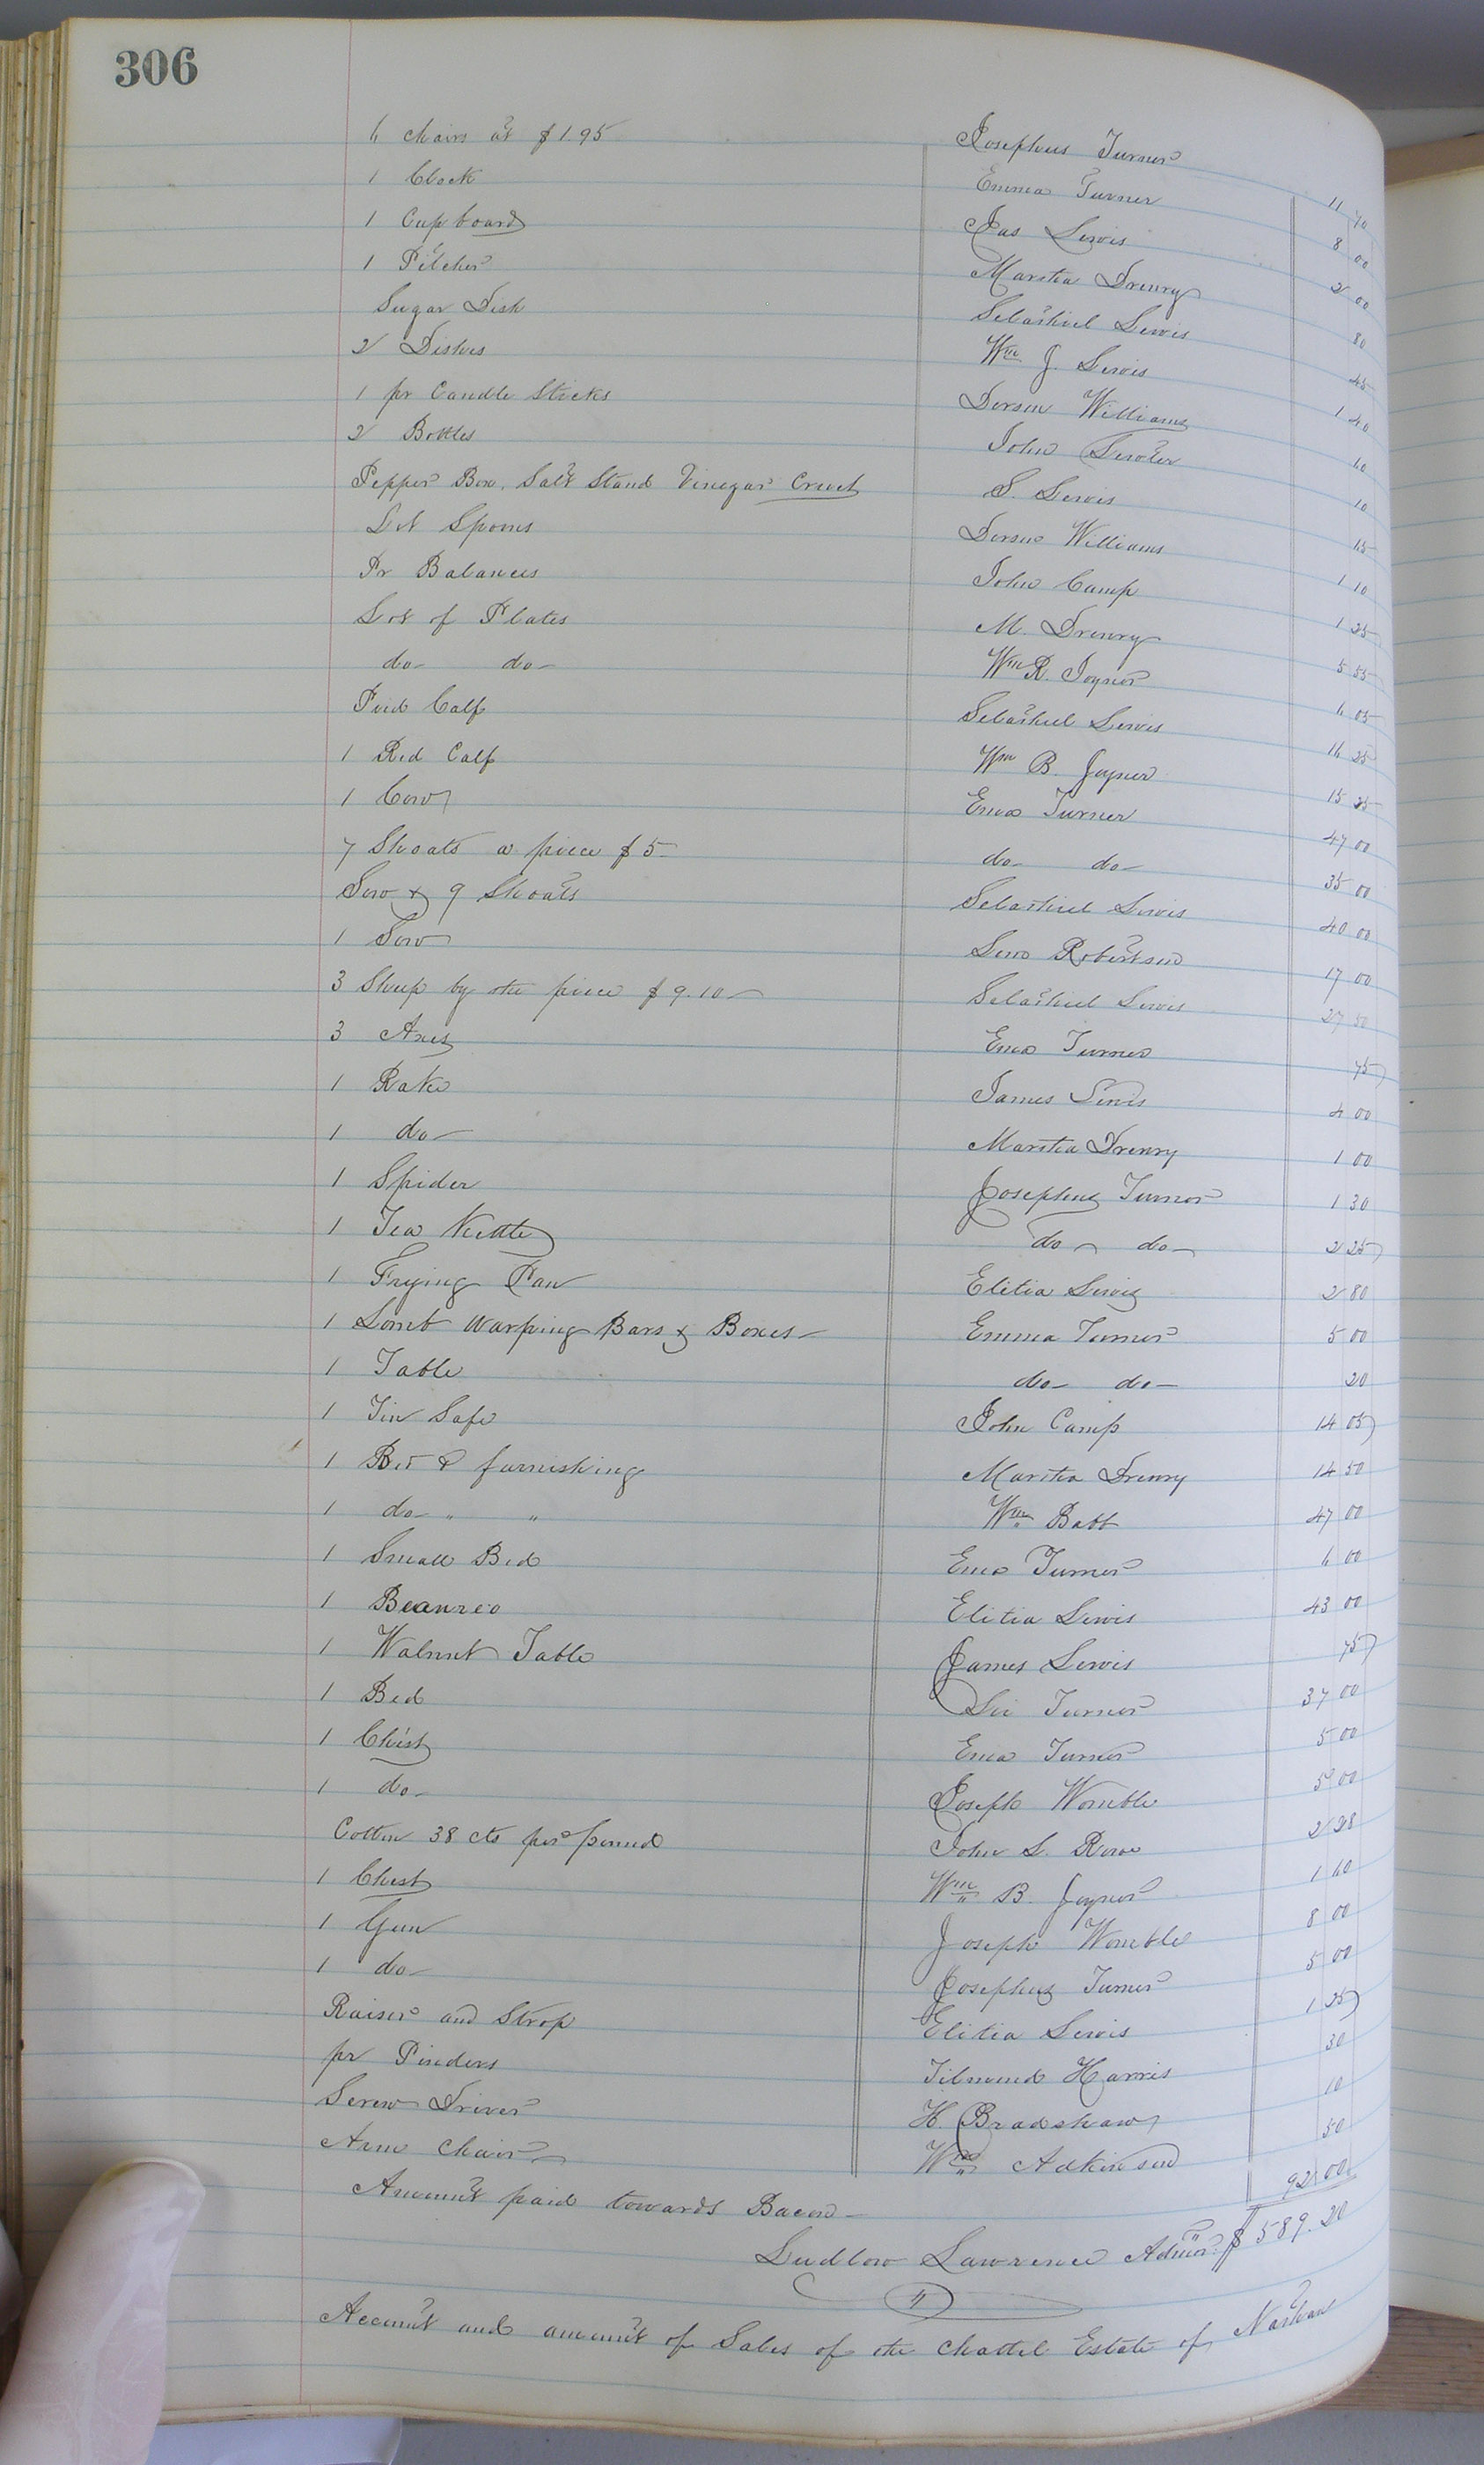 306
6 Chairs at $1.95 Josephus Turner 11 70
1 Clock Emma Turner 8 00
1 Cupboard Jas Lewis 2 00
1 Pitcher Martha Drewry 80
Sugar Dish Selathiel Lewis 45
2 Dishes Wm J. Lewis 1 40
1 pr Candle Sticks Williams 60
2 Bottles John 10
Pepper Box, Salt Stand Vinegar Cruet S. Lewis 15
Lot Spoons Williams 1 10
Pr Balances John Camp 1 25
Lot of Plates M. Drewry 5 55
do do Wm R. Joyner 6 05
Pied Calf Selathiel Lewis 16 25
1 Red Calf Wm B. Joyner 15 25
1 Cow Ema Turner 47 00
7 Shoats a piece $5 do do 35 00
Sow & 9 Shoats Selathiel Lewis 40 00
1 Sow Robertson 17 00
3 Sheep by the piece $9.10 Selathiel Lewis
3 Axes Ema Turner 75
1 Rake James Lewis 4 00
1 do Martha Drewry 1 00
1 Spider Josephus Turner 1 30
1 Tea Kettle do do 2 25
1 Frying Pan Elitia Lewis 2 80
1 Lomb Warping Bars & Boxes Emma Turner 5 00
1 Table do do 20
1 Tin Safe John Camp 14 05
1 Bed & furnishing Martha Drewry 14 50
1 do " " Wm Babb 47 00
1 Small Bed Ema Turner 6 00
1 Beaureo Elitia Lewis 43 00
1 Walnut Table James Lewis 75
1 Bed Turner 37 00
1 Chest Ema Turner 5 00
1 do Joseph Womble 5 00
Cotton 38 cts per pound John L. Rowe 2 28
1 Chest Wm B. Joyner 1 60
1 Gun Joseph Womble 8 00
1 do Josephus Turner 5 00
Raiser and Strop Elitia Lewis 1 25
pr Harris 30
Screw Driver H. Bradshaw 10
Arm Chair Wm Adkinson 50
Amount paid towards Bacon 92 00
Ludlow Lawrence Admor. $589.20
Account and amount of Sales of the Chattel Estate of Nathan